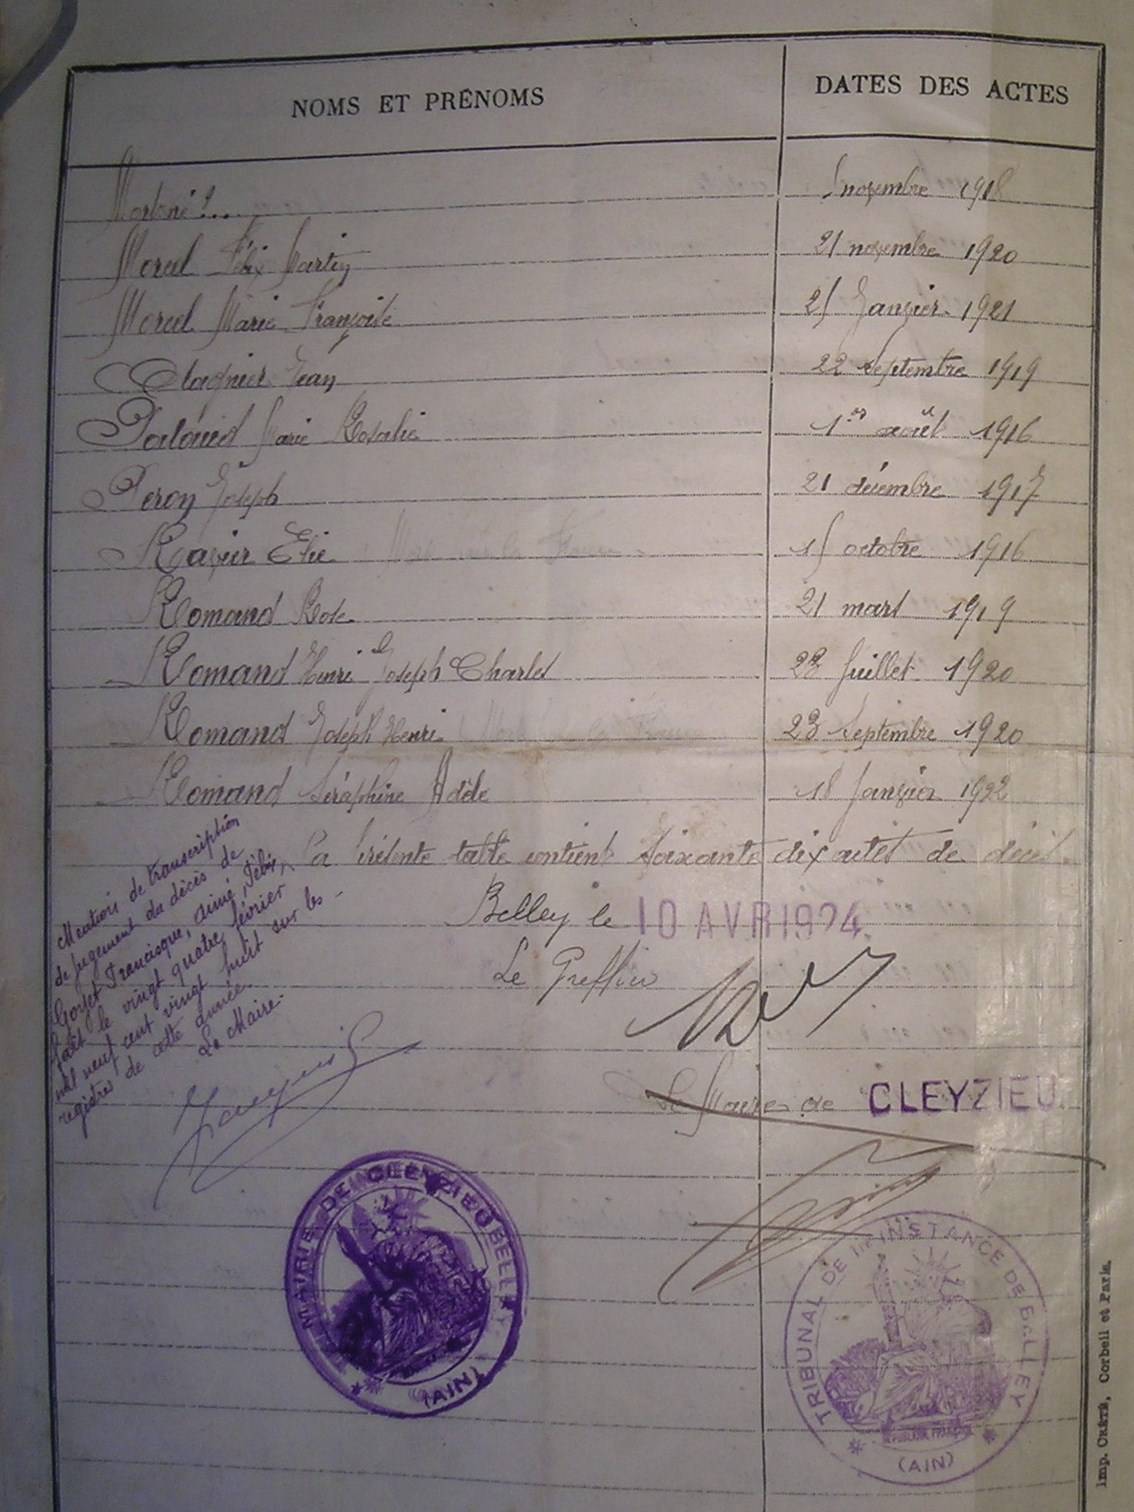 NOMS ET PRÉNOMS
DATES DES ACTES
Mortné 1.... 5 novembre 1918
Morcel Félix Martin 21 novembre 1920
Morcel Marie Françoise 25 Janvier 1921
Jean 22 Septembre 1919
Marie Rosalie 1er août 1916
Peron Joseph 21 décembre 1917
Ravier Elie 15 octobre 1916
Romand Rose 21 mars 1919
Romand Henri Joseph Charles 23 Juillet 1920
Romand Joseph Henri 23 Septembre 1920
Romand Séraphine Adèle 18 Janvier 1922
La Présente table contient Soixante dix actes de décès.
Belley le 10 AVR 1924
Le Greffier
Le Maire de CLEYZIEU
Mention de transcription
de jugement du décès de
Gorjet Francisque, aimé, Félix,
fait le vingt quatre février
mil neuf cent vingt huit sur les
registres de cette année.
Le Maire.
MAIRIE DE CLEYZIEU BELLEY
(AIN)
TRIBUNAL DE 1re INSTANCE DE BELLEY
RÉPUBLIQUE FRANÇAISE
(AIN)
Imp. CRÉTÉ, Corbeil et Paris.